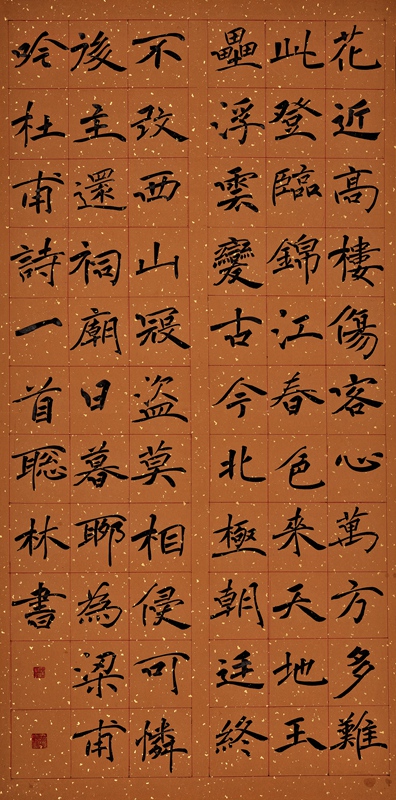 花近高樓傷客心萬方多難
此登臨錦江春色來天地玉
壘浮雲變古今北極朝廷終
不改西山寇盜莫相侵可憐
後主還祠廟日暮聊為梁甫
吟杜甫詩一首聰林書